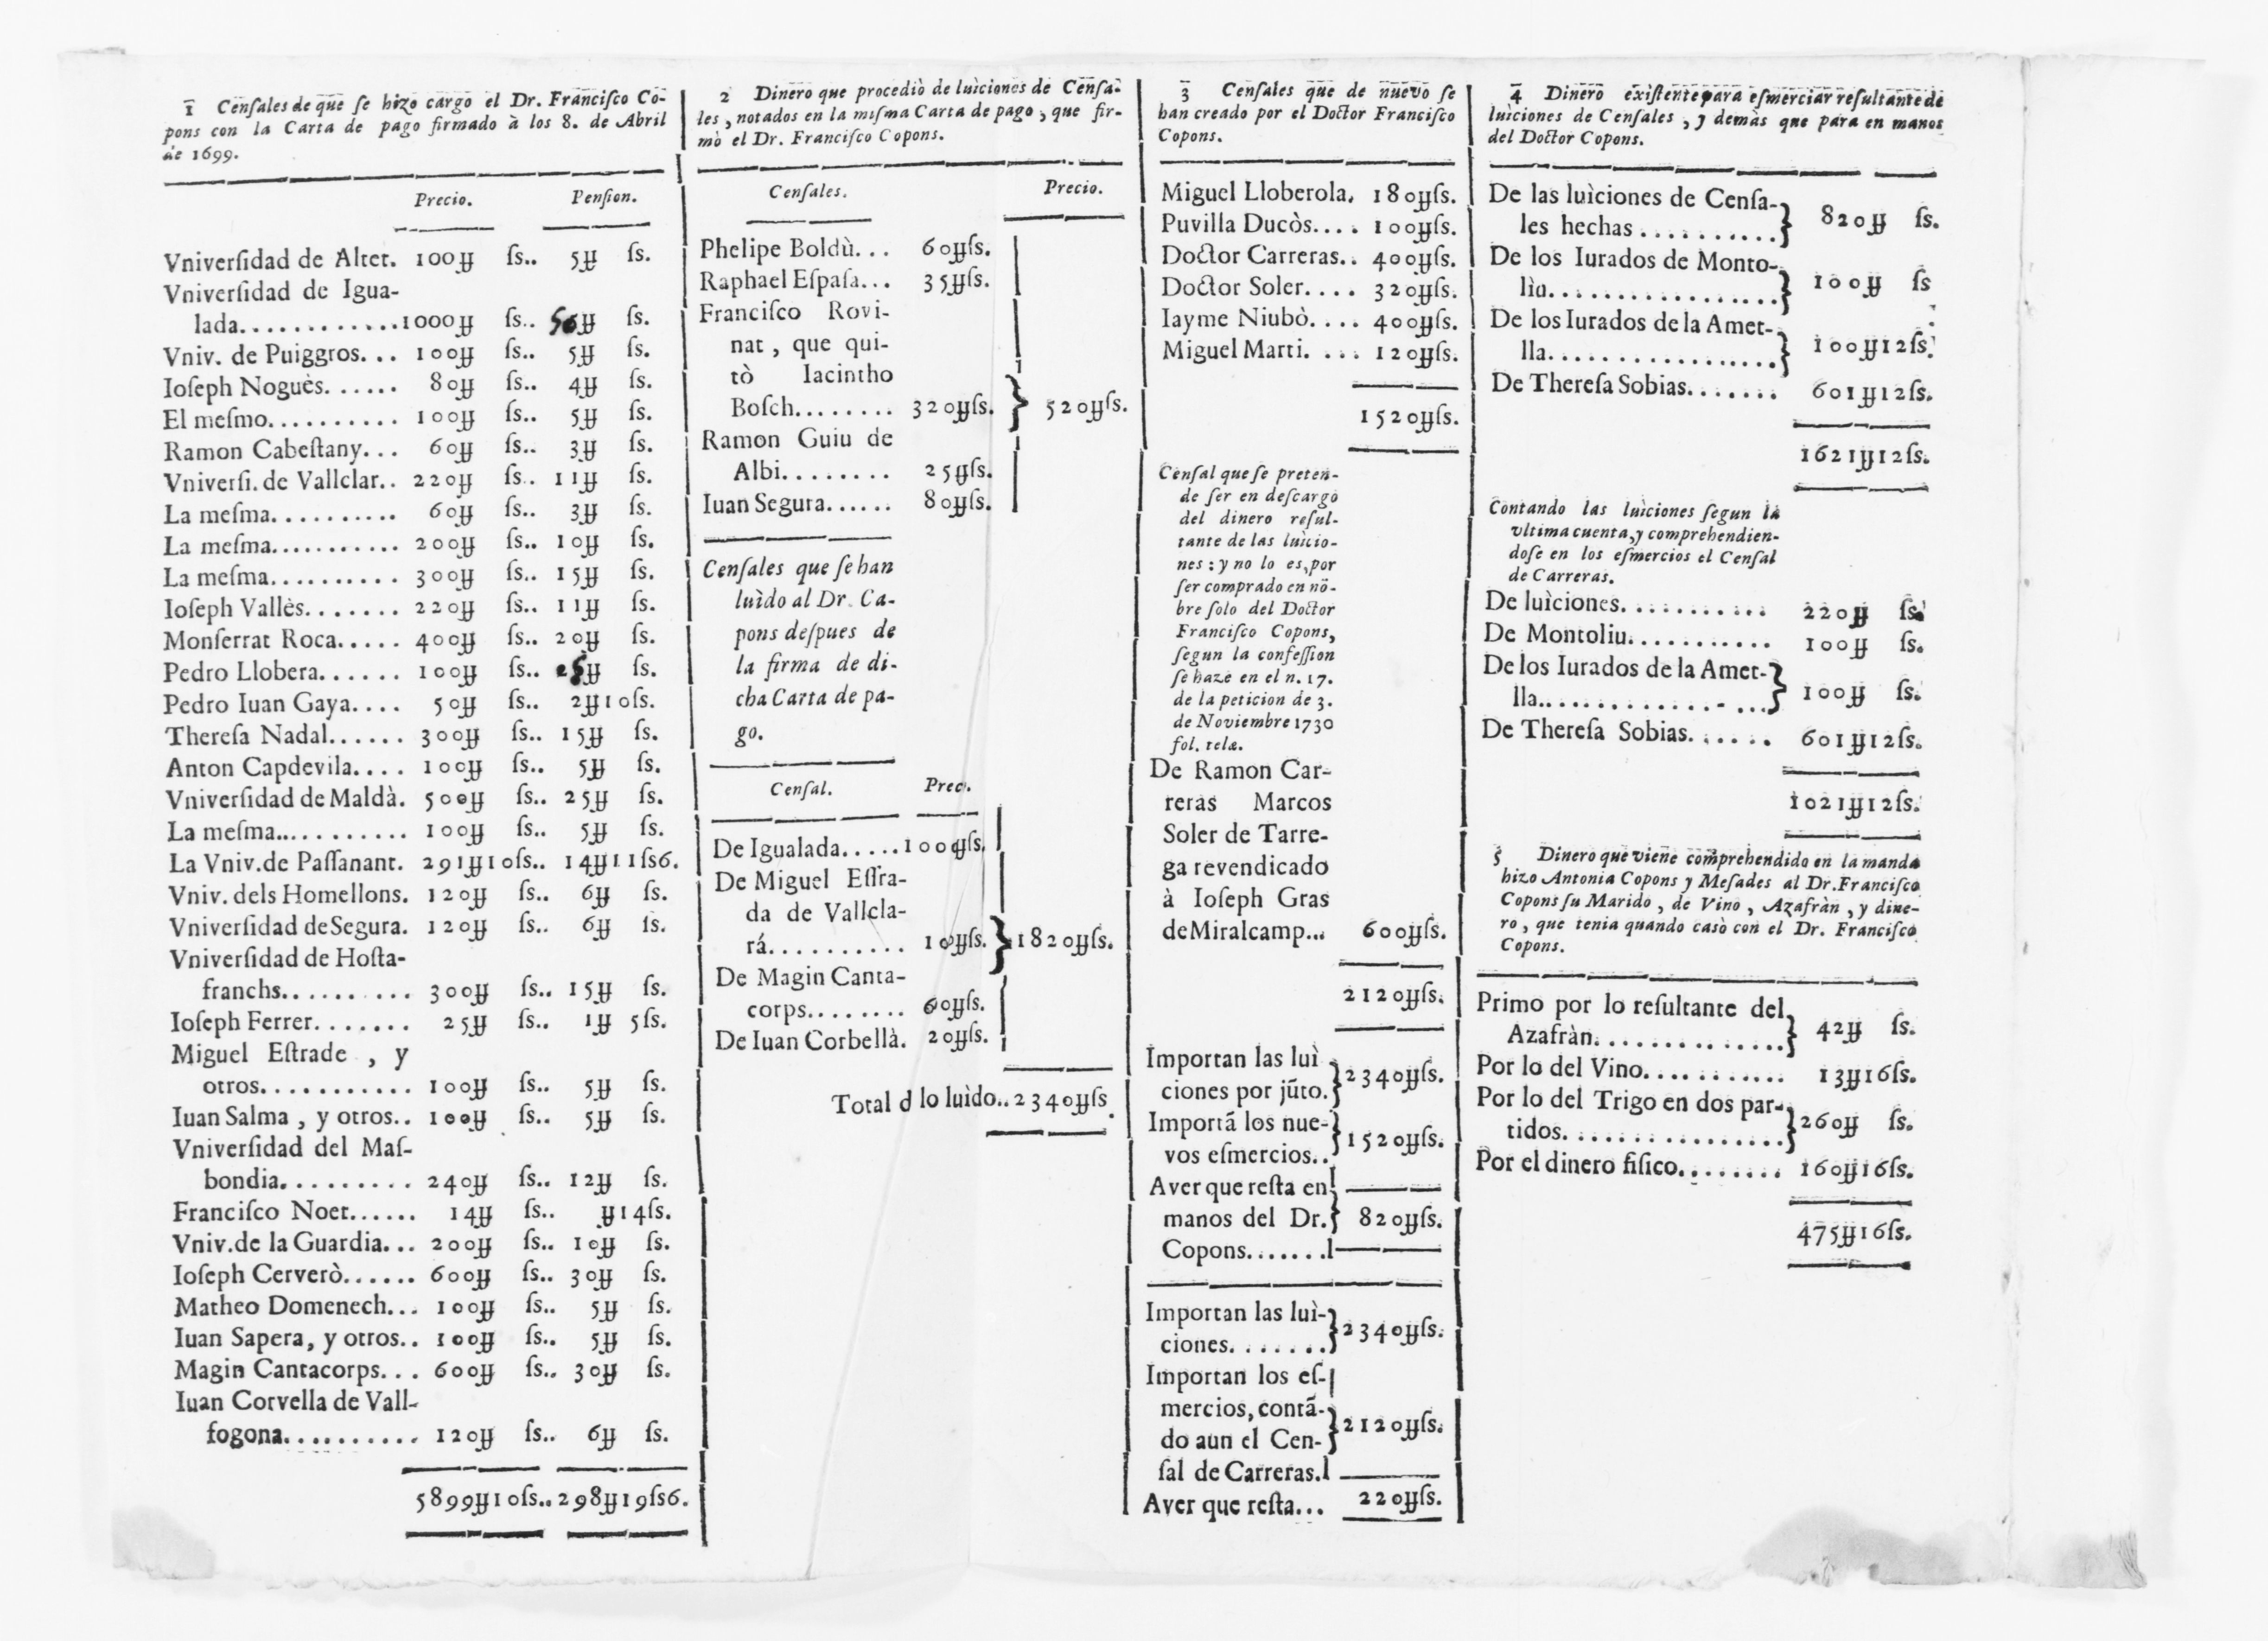 1 Censales de que se hizo cargo el Dr. Francisco Co-
pons con la Carta de pago firmado à los 8. de Abril
de 1699.
Precio. Pension.
Vniversidad de Altet. 100ff ſs.. 5ff ſs.
Vniversidad de Igua-
lada............1000ff ſs.. 50ff ſs.
Vniv. de Puiggros... 100ff ſs.. 5ff ſs.
Ioſeph Noguès...... 80ff ſs.. 4ff ſs.
El meſmo.......... 100ff ſs.. 5ff ſs.
Ramon Cabeſtany... 60ff ſs.. 3ff ſs.
Vniverſi. de Vallclar.. 220ff ſs.. 11ff ſs.
La meſma.......... 60ff ſs.. 3ff ſs.
La meſma........... 200ff ſs.. 10ff ſs.
La meſma.......... 300ff ſs.. 15ff ſs.
Ioſeph Vallès....... 220ff ſs.. 11ff ſs.
Monſerrat Roca..... 400ff ſs.. 20ff ſs.
Pedro Llobera...... 100ff ſs.. ff ſs.
Pedro Iuan Gaya.... 50ff ſs.. 2ff10ſs.
Thereſa Nadal...... 300ff ſs.. 15ff ſs.
Anton Capdevila.... 100ff ſs.. 5ff ſs.
Vniverſidad de Maldà. 500ff ſs.. 25ff ſs.
La meſma........... 100ff ſs.. 5ff ſs.
La Vniv.de Paſſanant. 291ff10ſs.. 14ff11ſs6.
Vniv. dels Homellons. 120ff ſs.. 6ff ſs.
Vniverſidad de Segura. 120ff ſs.. 6ff ſs.
Vniverſidad de Hoſta-
franchs.......... 300ff ſs.. 15ff ſs.
Ioſeph Ferrer....... 25ff ſs.. 1ff 5ſs.
Miguel Eſtrade , y
otros........... 100ff ſs.. 5ff ſs.
Iuan Salma , y otros.. 100ff ſs.. 5ff ſs.
Vniverſidad del Maſ-
bondia......... 240ff ſs.. 12ff ſs.
Franciſco Noet...... 14ff ſs.. ff14ſs.
Vniv.de la Guardia... 200ff ſs.. 10ff ſs.
Ioſeph Cerverò...... 600ff ſs.. 30ff ſs.
Matheo Domenech... 100ff ſs.. 5ff ſs.
Iuan Sapera, y otros.. 100ff ſs.. 5ff ſs.
Magin Cantacorps... 600ff ſs.. 30ff ſs.
Iuan Corvella de Vall-
fogona.......... 120ff ſs.. 6ff ſs.
5899ff10ſs.. 298ff19ſs6.
2 Dinero que procediò de luìciones de Cenſa-
les , notados en la miſma Carta de pago , que fir-
mò el Dr. Franciſco Copons.
Cenſales. Precio.
Phelipe Boldù... 60ffſs.
Raphael Eſpaſa... 35ffſs.
Franciſco Rovi-
nat , que qui-
tò Iacintho
Boſch........ 320ffſs. } 520ffſs.
Ramon Guiu de
Albi........ 25ffſs.
Iuan Segura...... 80ffſs.
Cenſales que ſe han
luìdo al Dr. Co-
pons deſpues de
la firma de di-
cha Carta de pa-
go.
Cenſal. Prec.
De Igualada.....1000ffſs.
De Miguel Eſtra-
da de Vallcla-
rá.......... ffſs. } 1820ffſs.
De Magin Canta-
corps........ ffſs.
De Iuan Corbellà. 20ffſs.
Total d lo luìdo..2340ffſs.
3 Cenſales que de nuevo ſe
han creado por el Doctor Franciſco
Copons.
Miguel Lloberola. 180ffſs.
Puvilla Ducòs.... 100ffſs.
Doctor Carreras.. 400ffſs.
Doctor Soler.... 320ffſs.
Iayme Niubò.... 400ffſs.
Miguel Marti. ... 120ffſs.
1520ffſs.
Cenſal que ſe preten-
de ſer en deſcargo
del dinero reſul-
tante de las luìcio-
nes : y no lo es, por
ſer comprado en nõ-
bre ſolo del Doctor
Franciſco Copons,
ſegun la confeſſion
ſe haze en el n. 17.
de la peticion de 3.
de Noviembre 1730
fol. relæ.
De Ramon Car-
reras Marcos
Soler de Tarre-
ga revendicado
à Ioſeph Gras
de Miralcamp... 600ffſs.
2120ffſs.
Importan las luì
ciones por jũto. } 2340ffſs.
Importã los nue-
vos eſmercios.. } 1520ffſs.
Aver que reſta en
manos del Dr. } 820ffſs.
Copons.......
Importan las luì-
ciones....... } 2340ffſs.
Importan los eſ-
mercios, contã- } 2120ffſs.
do aun el Cen-
ſal de Carreras.
Aver que reſta... 220ffſs.
4 Dinero exiſtente para eſmerciar reſultante de
luìciones de Cenſales , y demàs que para en manos
del Doctor Copons.
De las luìciones de Cenſa-
les hechas .......... } 820ff ſs.
De los Iurados de Monto-
lìu................. } 100ff ſs
De los Iurados de la Amet-
lla................. } 100ff12ſs.
De Thereſa Sobias....... 601ff12ſs.
1621ff12ſs.
Contando las luìciones ſegun la
vltima cuenta, y comprehendien-
doſe en los eſmercios el Cenſal
de Carreras.
De luìciones........... 220ff ſs.
De Montoliu........... 100ff ſs.
De los Iurados de la Amet-
lla................ } 100ff ſs.
De Thereſa Sobias...... 601ff12ſs.
1021ff12ſs.
5 Dinero que viene comprehendido en la manda
hizo Antonia Copons y Meſades al Dr. Franciſco
Copons ſu Marido , de Vino , Azafràn , y dine-
ro , que tenia quando casò con el Dr. Franciſco
Copons.
Primo por lo reſultante del
Azafràn............... } 42ff ſs.
Por lo del Vino........... 13ff16ſs.
Por lo del Trigo en dos par-
tidos................ } 260ff ſs.
Por el dinero fiſico........ 160ff16ſs.
475ff16ſs.